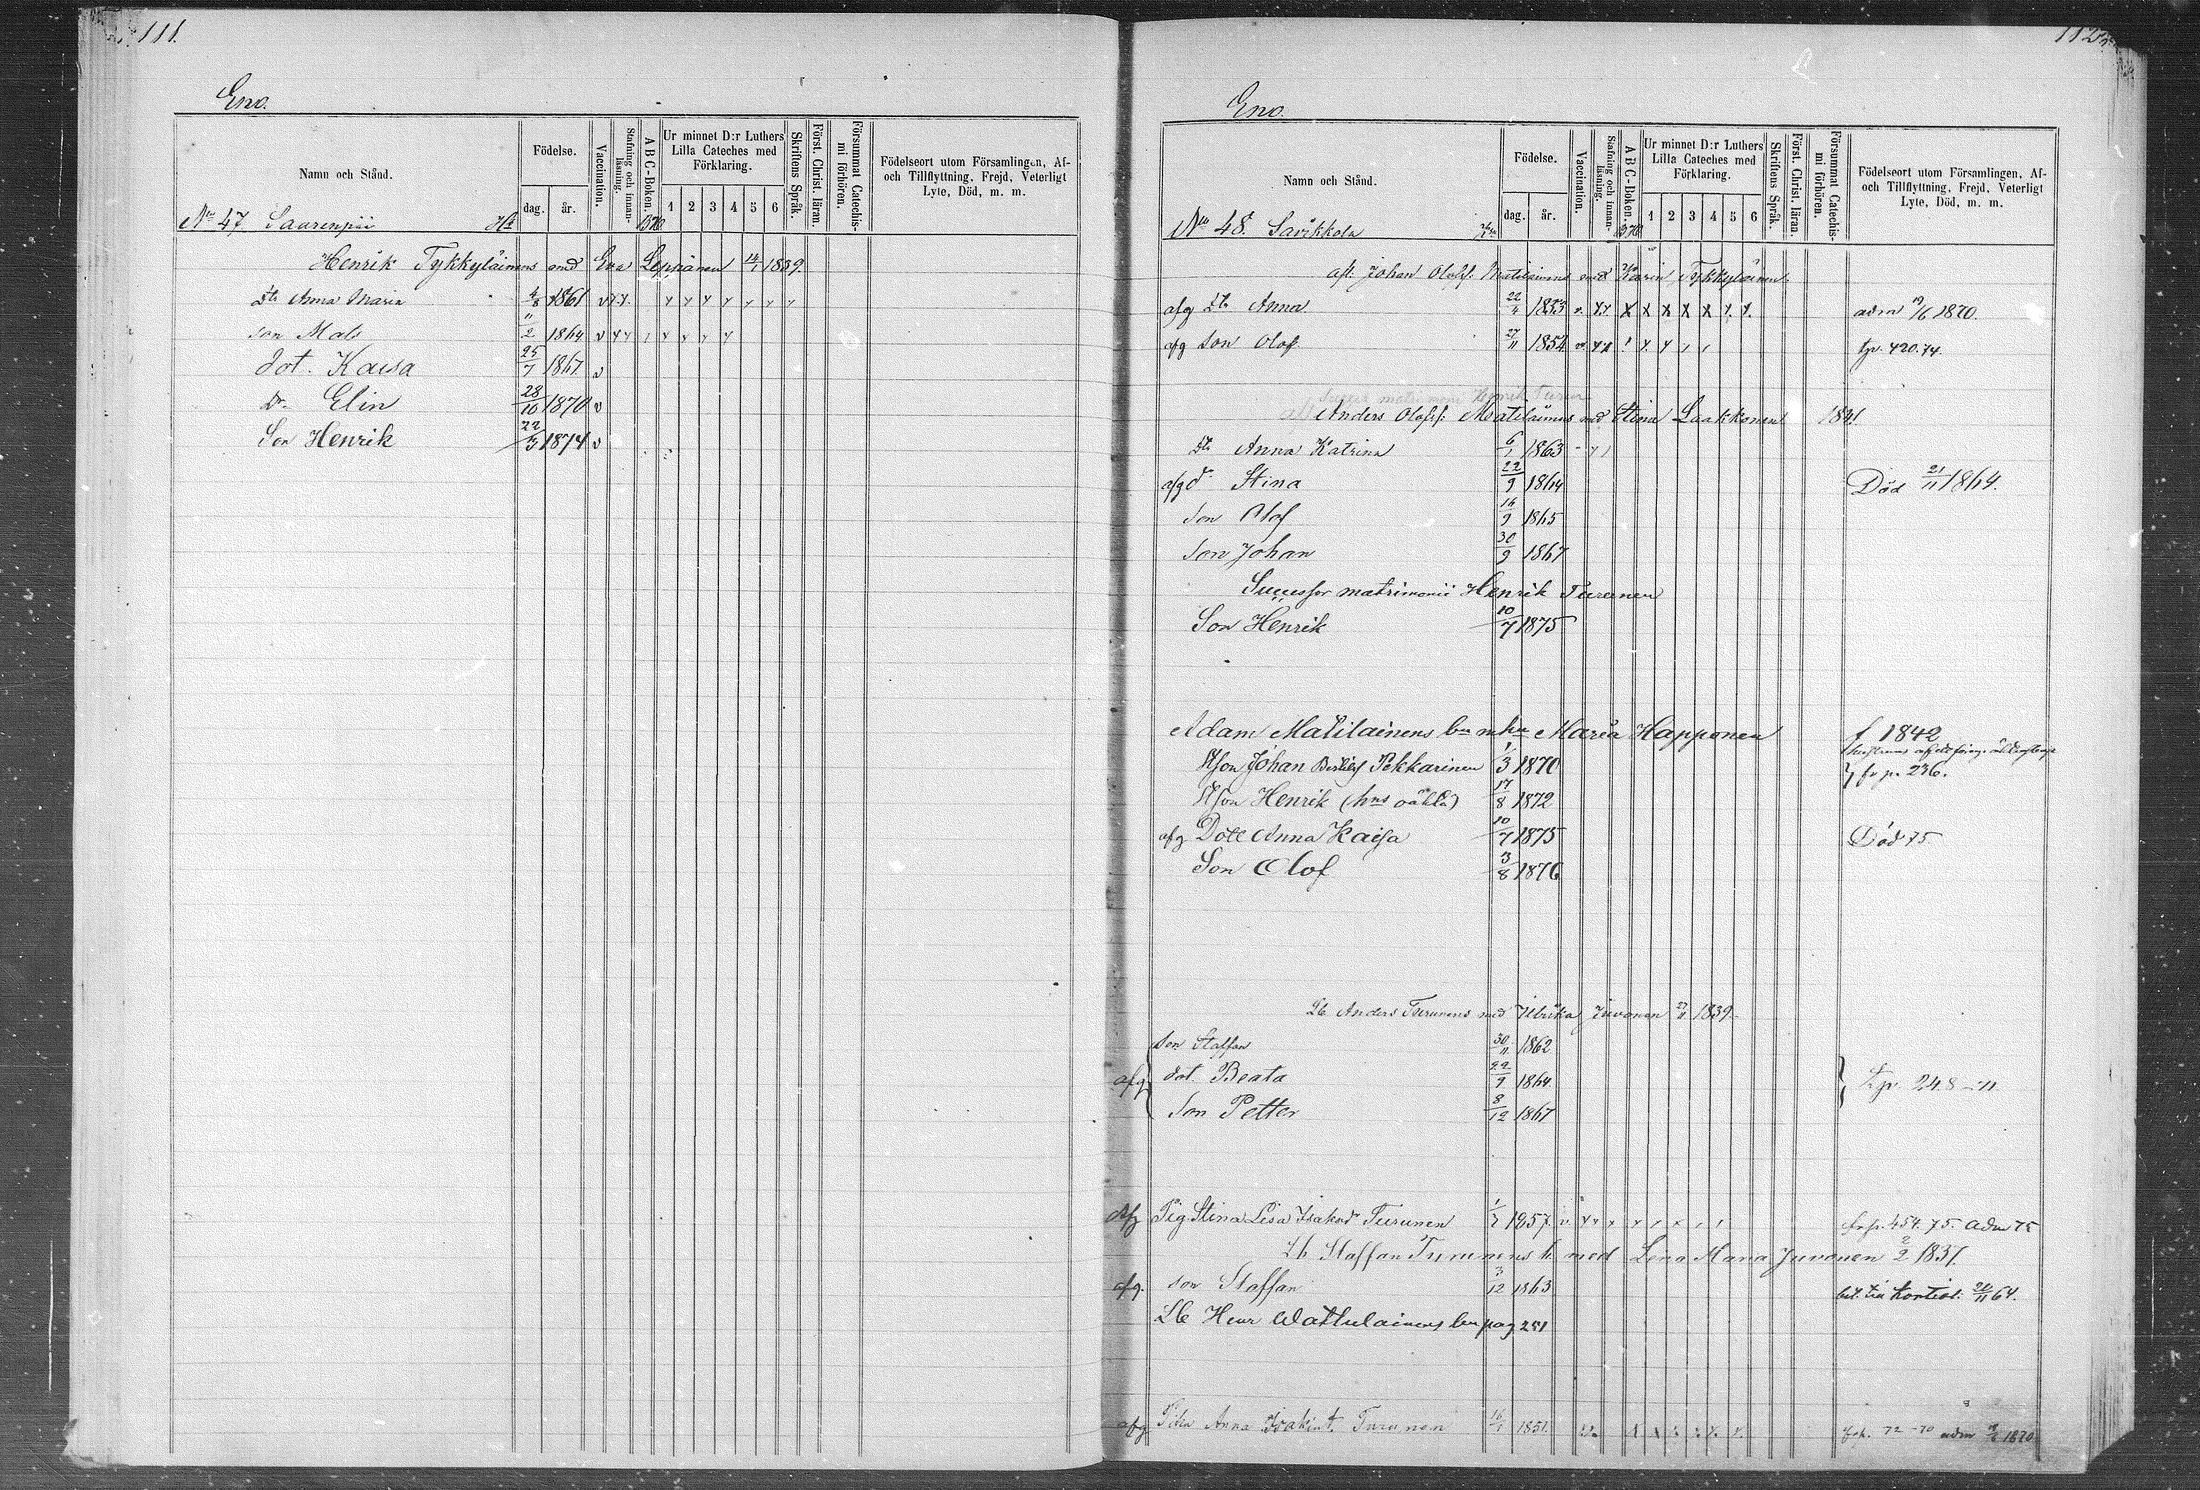 111.
Eno.
Namn och Stånd.
Födelse.
dag.
år.
Vaccination.
Stafning och innan-
läsning.
A B C-Boken.
Ur minnet D:r Luthers
Lilla Cateches med
Förklaring.
1 2 3 4 5 6
Skriftens Språk.
Först. Christ. läran.
Försummat Catechis-
mi förhören.
Födelseort utom Församlingen, Af-
och Tillflyttning, Frejd, Veterligt
Lyte, Död, m. m.
No 47 Saarenpää
Henrik Tykkyläinens med Eva Leppänen 1839.
dtr Anna Maria 4/8 1861 v
son Mats 11/2 1864 v
dot. Kaisa 25/7 1867. v
dr. Elin 28/10 1870 v
Son Henrik 22/3 1874 v
112
Eno.
Namn och Stånd.
Födelse.
dag.
år.
Vaccination.
Stafning och innan-
läsning.
A B C-Boken.
Ur minnet D:r Luthers
Lilla Cateches med
Förklaring.
1 2 3 4 5 6
Skriftens Språk.
Först. Christ. läran.
Försummat Catechis-
mi förhören.
Födelseort utom Församlingen, Af-
och Tillflyttning, Frejd, Veterligt
Lyte, Död, m. m.
No 48. Savikkola
afl. Johan Olofsf. Matilainens med Karin Tykkyläinen
afg dtr Anna 22/4 1833 adm 19/6 1870.
afg son Olof 27/11 1852 tp. 420.74.
Anders Olofsf: Matilainens med Stina Laakkonen 1841
dtr Anna Katrina 6/1 1863
afg dr Stina 22/9 1864 Död 21/11 1864.
Son Olof 16/9 1865
Son Johan 30/9 1867
Successor matrimonii Henrik Turunen
Son Henrik 10/7 1875
Adam Matilainens bn mhu Maria Happonen f 1842
Johan Pekkarinen 1/3 1870 fr p. 236.
Henrik (hns oäkta) 17/8 1872
afg Dott Anna Kaisa 10/7 1875 Död 75
Son Olof 3/8 1876
Lb Anders Turunens med Ulrika Juvonen 27/11 1839.
Son Staffan 30/11 1862
afg dot. Beata 22/9 1864. tp. 248-71
Son Petter 8/12 1867
Afg Pig. Stina Lisa Isaksdr Turunen 1/7 1857. fr p. 454. 75. adm 75
Lb Staffan Turunens h. med Lena Maria Juvonen 2/2 1831.
afg. son Staffan 3/12 1863 bet. till Kontiol. 20/11 64.
Lb Henr Wattulainens bn pag 251
afg Anna Turunen 16/1 1851. 72-70 adm 1870